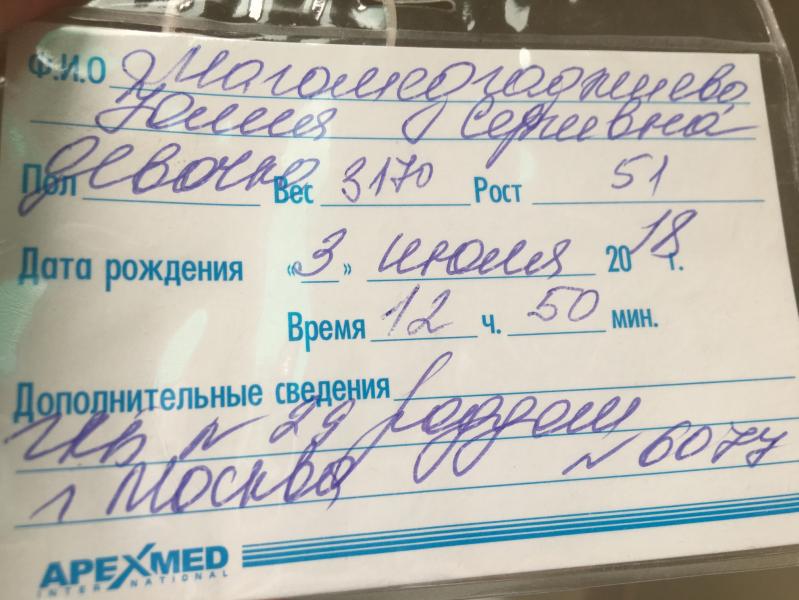 Ф.И.О Магомедгаджиева
Юлия Сержевна
Пол девочка Вес 3170 Рост 51
Дата рождения «3» июля 2018 г.
Время 12 ч. 50 мин.
Дополнительные сведения
ГКБ N 29 роддом
г Москва N 6077
APEXMED
INTERNATIONAL